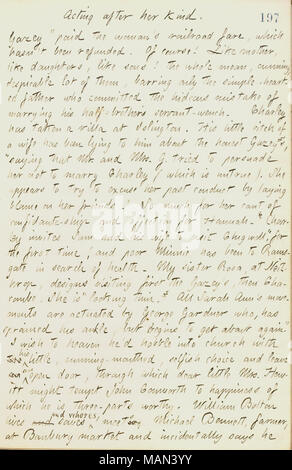 Acting after her kind.
197
Gazey" paid the woman's railroad fare, which
hasn't been refunded. Of course! Like mother,
like daughters, like sons! the whole mean, cunning
despicable lot of them, barring only the simple-heart-
ed father who committed the hideous mistake of
marrying his half-brother's servant-wench. Charley
has taken a villa at Islington. His little bitch of
a wife has been lying to him about the honest Gazeys,
"saying that Mr. and Mrs. G. tried to persuade
her not to marry Charley (which is untrue). She
appears to try to excuse her past conduct by laying
blame on her friends." So much for her cant of
confidant-ship and affection for Hannah. "Char-
ley invites Sam and his wife to visit Chigwell for
the first time; and poor Minnie has been to Rams-
gate in search of health. My sister Rosa, at
designs visiting first the Gazeys, then Cha-
combe. She is looking fine." All Sarah Ann's move-
ments are actuated by George Gardner who, has
sprained his ankle, "but begins to get about again."
I wish to heaven he'd hobble into church with
his little, cunning-mouthed, selfish choice and leave
an "open door," through which dear little Mrs. How-
itt might tempt John Conworth to happiness of
which he is three-parts worthy. William Bolton
lives and whores, "saves" not. Michael Bennett, farmer,
at Banbury market and incidentally says he
alamy
Image ID: MAN3YY
www.alamy.com